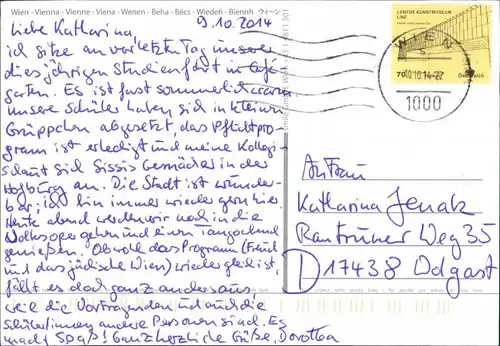 Wien - Vienna - Vienne - Viena - Wenen - Beha - Bécs - Wieden - Biennh ウィーン
9.10.2014
Liebe Katharina,
ich sitze am vorletzten Tag unserer
diesjährigen Studienfahrt in Café-
garten. Es ist fast sommerlich warm
unsere Schüler haben sich in kleinen
Grüppchen abgesetzt, das Pflichtpro-
gram ist erledigt und meine Kollegin
schaut sich Sissis Gemächer in der
Hofburg an. Die Stadt ist wunder-
bar; ich bin immer wieder gern hier.
Heute abend werden wir noch in die
Volksoper gehen und einen Tangoabend
genießen. Obwohl das Programm (Freud
und das jüdische Wien) wieder gleich ist,
fällt es doch ganz anders aus
weil die Vortragenden und auch die
Schüler/innen andere Personen sind. Es
macht Spaß! Ganz herzliche Grüße, Dorothea
LENTOS KUNSTMUSEUM
LINZ
70
WIEN
10.10.14-22
1000
An Frau
Katharina Jenak
Rantrumer Weg 35
D 17438 Wolgast